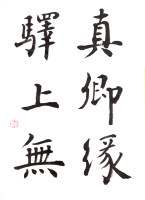 真卿緣
驛上無